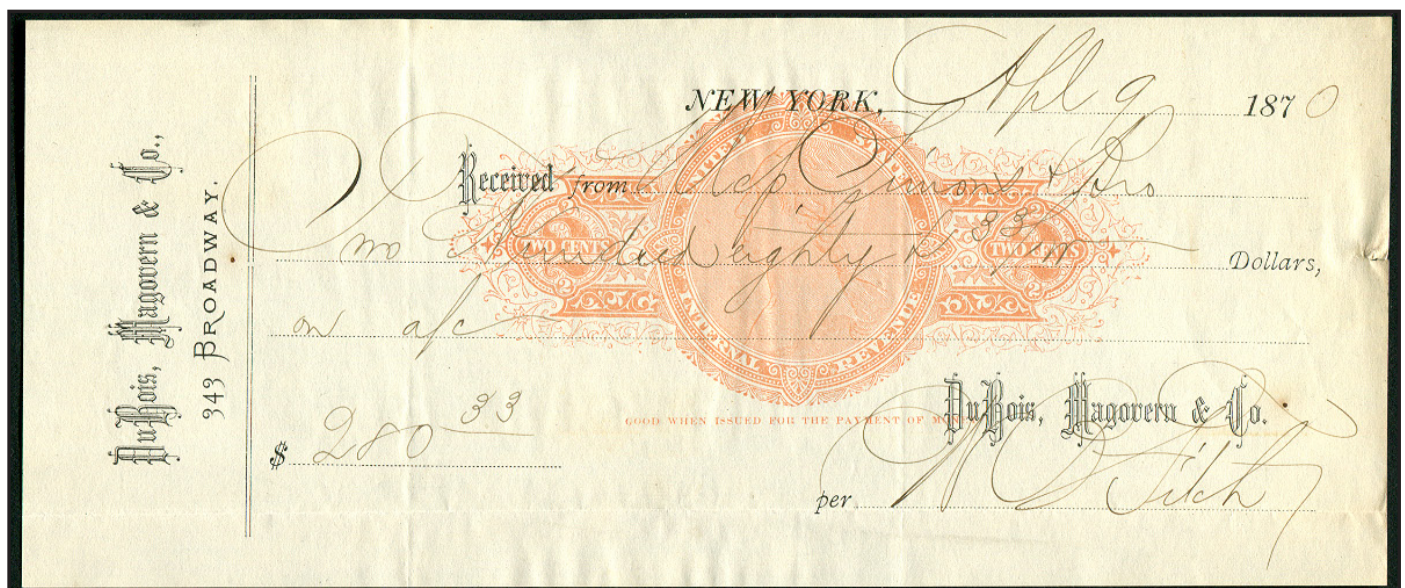 DuBois, Magovern & Co.,
343 BROADWAY.
NEW YORK, Apl 9 1870
Received from Simons & Bro
Two Hundred eighty & 33/100 Dollars,
on a/c
$ 280 33
UNITED STATES
INTERNAL REVENUE
TWO CENTS
2
TWO CENTS
2
GOOD WHEN ISSUED FOR THE PAYMENT OF
DuBois, Magovern & Co.
per Fitch